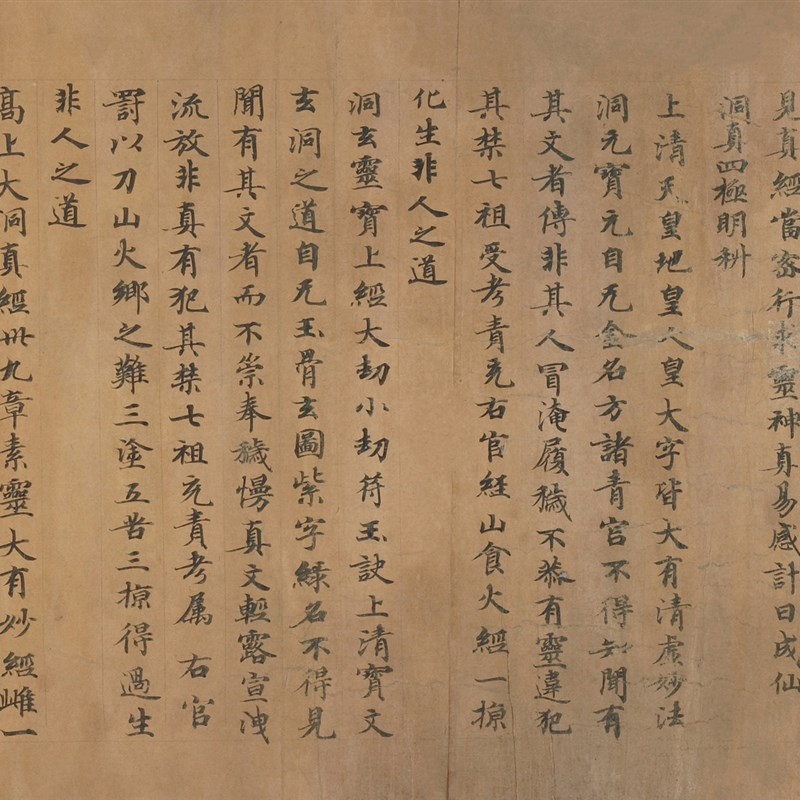 見真經當密行求靈神真易感計日成仙
洞真四極明科
上清天皇地皇人皇大字皆大有清虛妙法
洞元寶元自无金名方諸青宮不得知聞有
其文者傳非其人冒淹履穢不恭有靈違犯
其禁七祖受考責充右官經山食火經一掠
化生非人之道
洞玄靈寶上經大劫小劫符玉訣上清寶文
玄洞之道自无玉骨玄圖紫字綠名不得見
聞有其文者而不崇奉穢慢真文輕露宣洩
流放非真有犯其禁七祖充責考属右官
罰以刀山火鄉之難三塗五苦三掠得過生
非人之道
高上大洞真經卅九章素靈大有妙經雌一